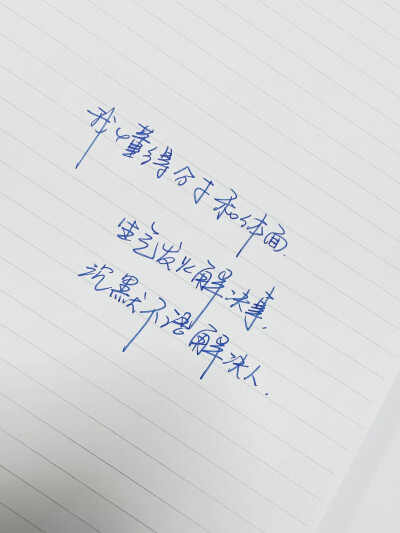 我懂得分寸和体面.
生气发火解决事,
沉默不语解决人.